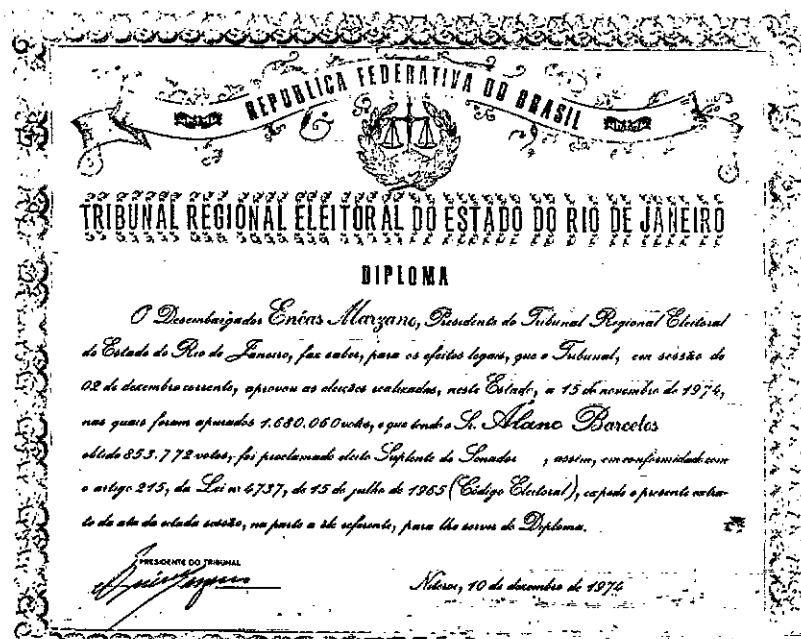 REPUBLICA FEDERATIVA DO BRASIL
TRIBUNAL REGIONAL ELEITORAL DO ESTADO DO RIO DE JANEIRO
DIPLOMA
O Desembargador Enéas Marzano, Presidente do Tribunal Regional Eleitoral
do Estado do Rio de Janeiro, faz saber, para os efeitos legais, que o Tribunal, em sessão de
02 de dezembro corrente, aprovou as eleições realizadas, neste Estado, a 15 de novembro de 1974,
nas quais foram apurados 1.680.060 votos, e que tendo o Sr. Alano Barcelos
obtido 853.772 votos, foi proclamado eleito Suplente de Senador , assim, em conformidade com
o artigo 215, da Lei nº 4737, de 15 de julho de 1965 (Código Eleitoral), expede o presente extra-
to da ata da citada sessão, na parte a ele referente, para lhe servir de Diploma.
PRESIDENTE DO TRIBUNAL
Niteroi, 10 de dezembro de 1974